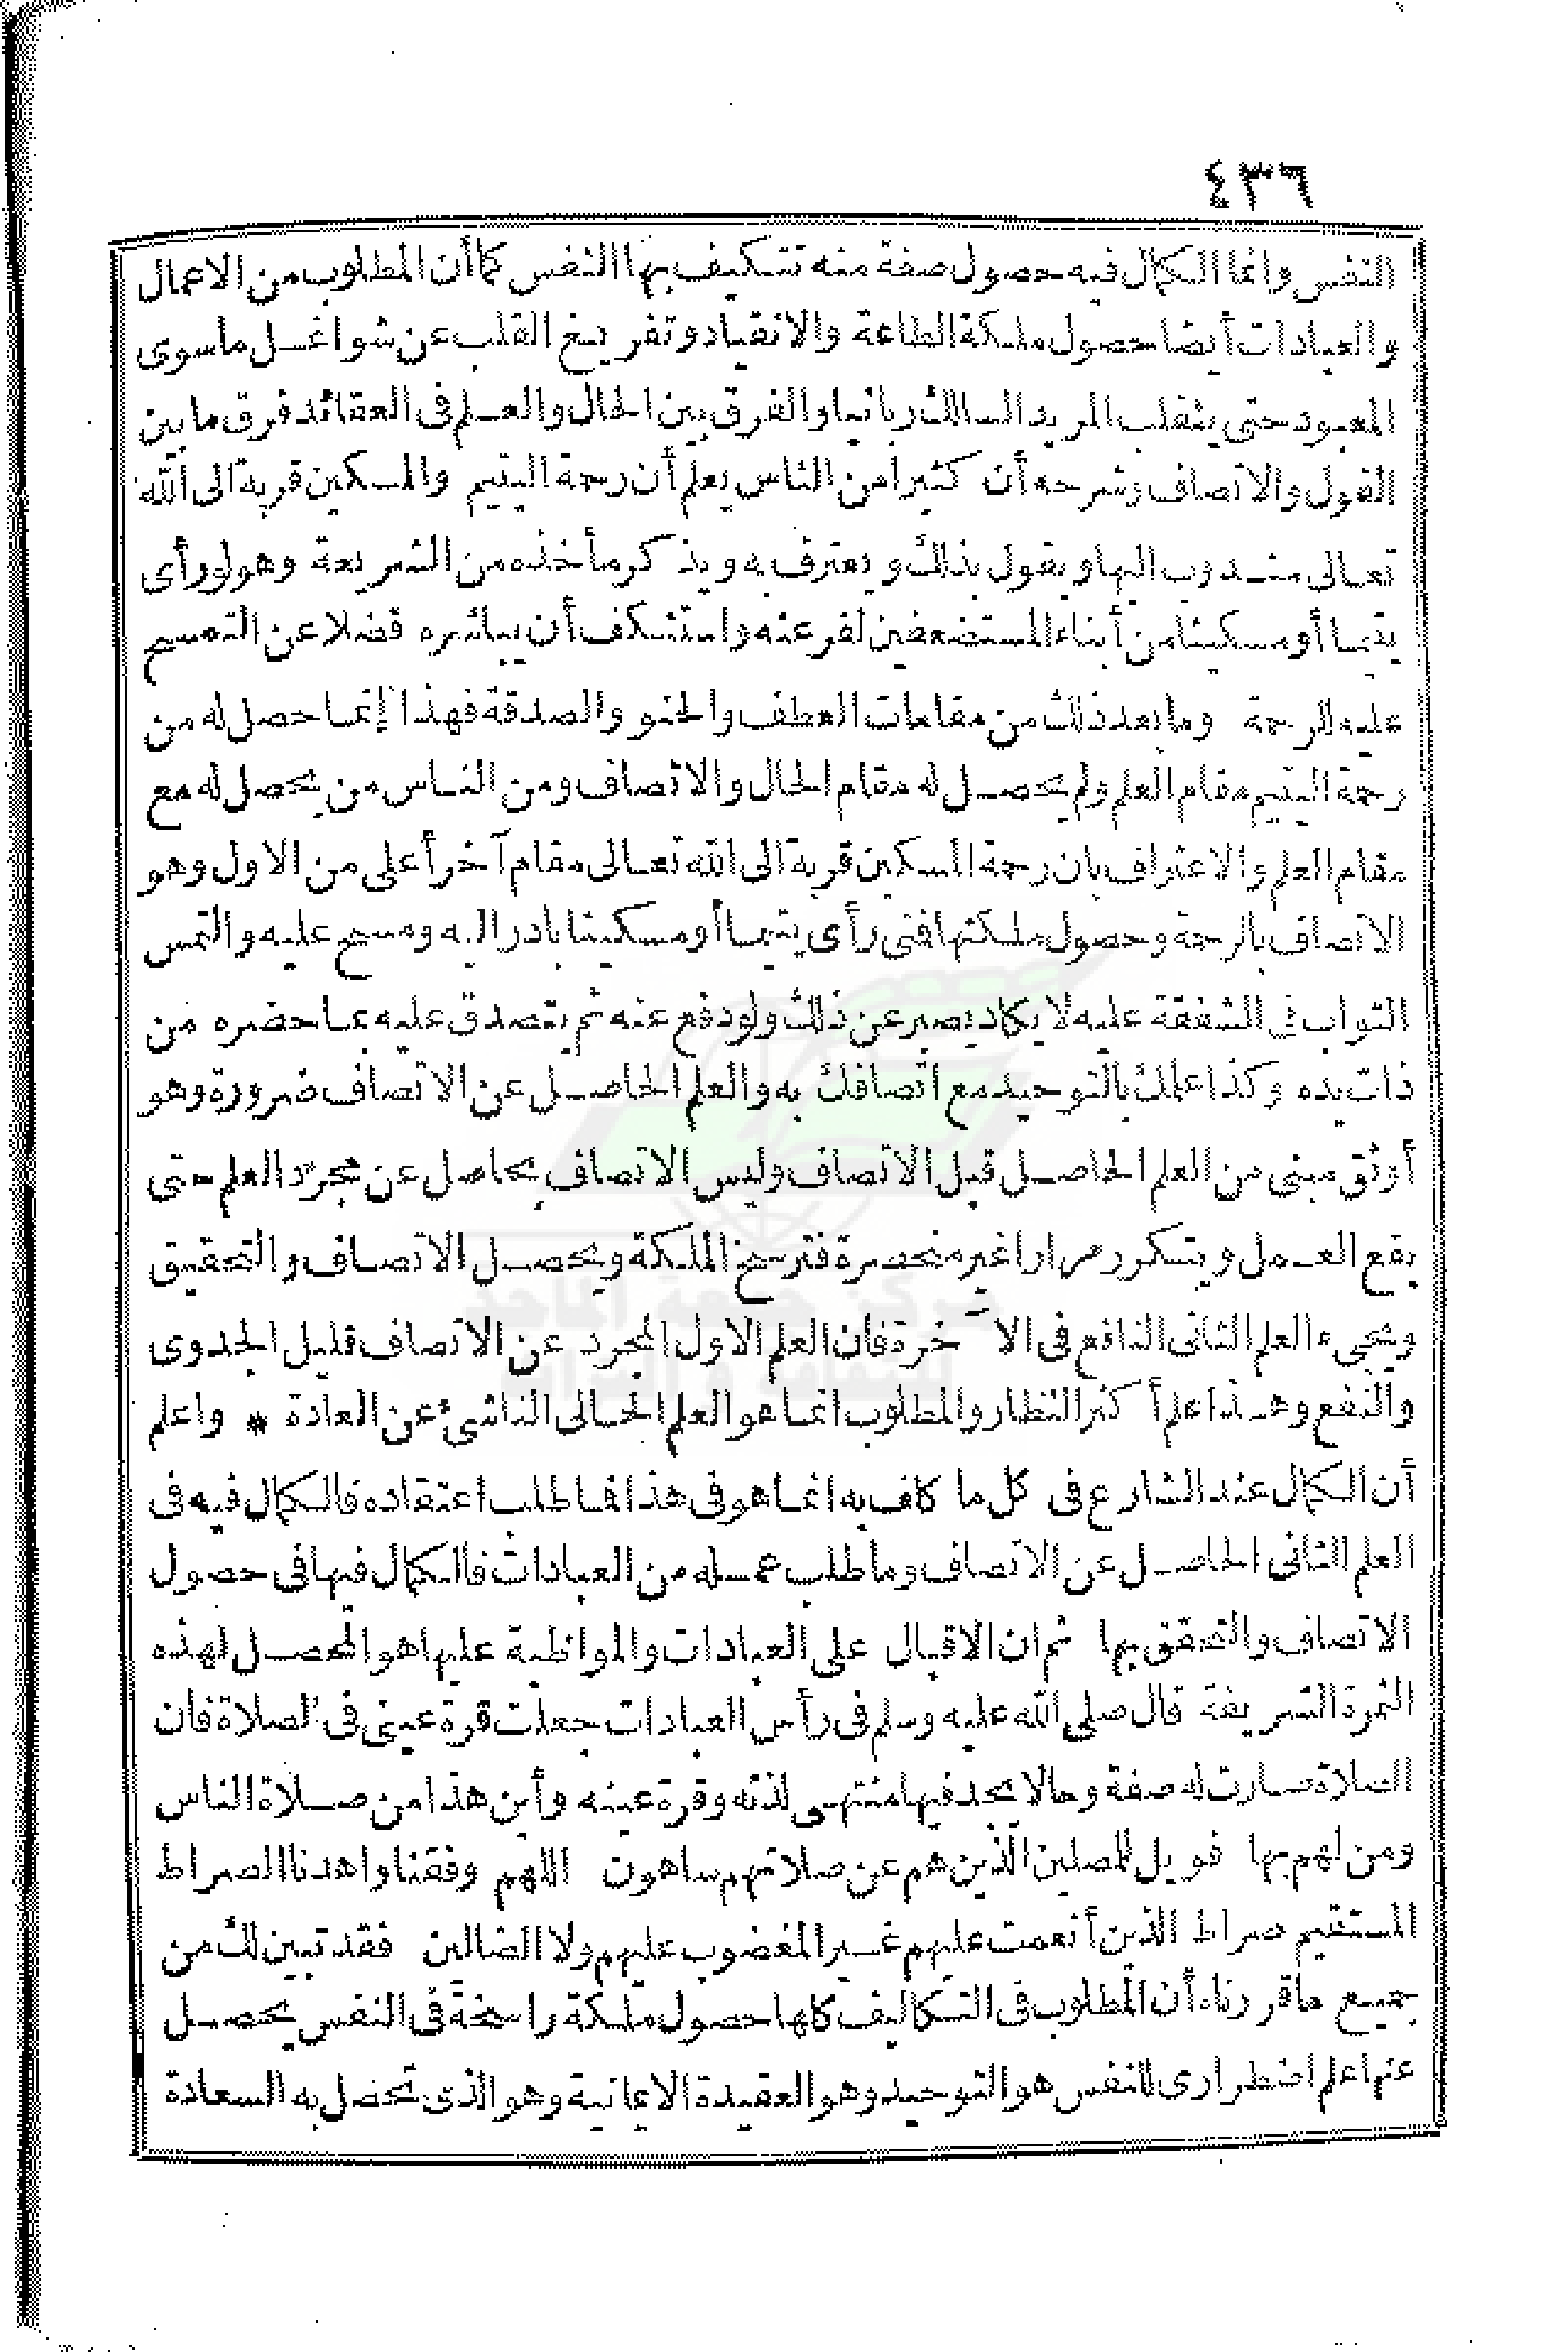 ٤٣٦
النفس وانما الكمال فيه حصول صفة منه تتكيف بها النفس كما أن المطلوب من الاعمال
والعبادات أيضا حصول ملكة الطاعة والانقياد وتفريغ القلب عن شواغل ما سوى
المعبود حتى ينقلب المريد السالك ربانيا والفرق بين الحال والعلم فى العقائد فرق ما بين
القول والاتصاف وشرحه أن كثيرا من الناس يعلم أن رحمة اليتيم والمسكين قربة الى الله
تعالى مندوب اليها ويقول بذلك ويعترف به ويذكر مأخذه من الشريعة وهو لو رأى
يتيما أو مسكينا من أبناء المستضعفين لفر عنه واستنكف أن يباشره فضلا عن التمسح
عليه للرحمة وما بعد ذلك من مقامات العطف والحنو والصدقة فهذا إنما حصل له من
رحمة اليتيم مقام العلم ولم يحصل له مقام الحال والاتصاف ومن الناس من يحصل له مع
مقام العلم والاعتراف بان رحمة المسكين قربة الى الله تعالى مقام آخر أعلى من الاول وهو
الاتصاف بالرحمة وحصول ملكتها فتى رأى يتيما أو مسكينا بادر اليه ومسح عليه والتمس
الثواب فى الشفقة عليه لا يكاد يصبر عن ذلك ولو دفع عنه ثم يتصدق عليه بما حضره من
ذات يده وكذا علمك بالتوحيد مع اتصافك به والعلم الحاصل عن الاتصاف ضرورة وهو
أوثق مبنى من العلم الحاصل قبل الاتصاف وليس الاتصاف بحاصل عن مجرد العلم حتى
يقع العمل ويتكرر مرارا غير منحصرة فترسخ الملكة ويحصل الاتصاف والتحقيق
ويجىء العلم الثانى النافع فى الآخرة فان العلم الاول المجرد عن الاتصاف قليل الجدوى
والنفع وهذا علم أكثر النظار والمطلوب انما هو العلم الحالى الناشئ عن العادة * واعلم
أن الكمال عند الشارع فى كل ما كلف به انما هو فى هذا فما طلب اعتقاده فالكمال فيه فى
العلم الثانى الحاصل عن الاتصاف وما طلب عمله من العبادات فالكمال فيها فى حصول
الاتصاف والتحقق بها ثم ان الاقبال على العبادات والمواظبة عليها هو المحصل لهذه
الثمرة الشريفة قال صلى الله عليه وسلم فى رأس العبادات جعلت قرة عينى فى الصلاة فان
الصلاة صارت له صفة وحالا يجد فيها منتهى لذته وقرة عينه وأين هذا من صلاة الناس
ومن لهم بها فويل للمصلين الذين هم عن صلاتهم ساهون اللهم وفقنا واهدنا الصراط
المستقيم صراط الذين أنعمت عليهم غير المغضوب عليهم ولا الضالين فقد تبين لك من
جميع ما قررناه أن المطلوب فى التكاليف كلها حصول ملكة راسخة فى النفس يحصل
عنها علم اضطرارى للنفس هو التوحيد وهو العقيدة الايمانية وهو الذى تحصل به السعادة
مركز جمعة الماجد
للثقافة و التراث